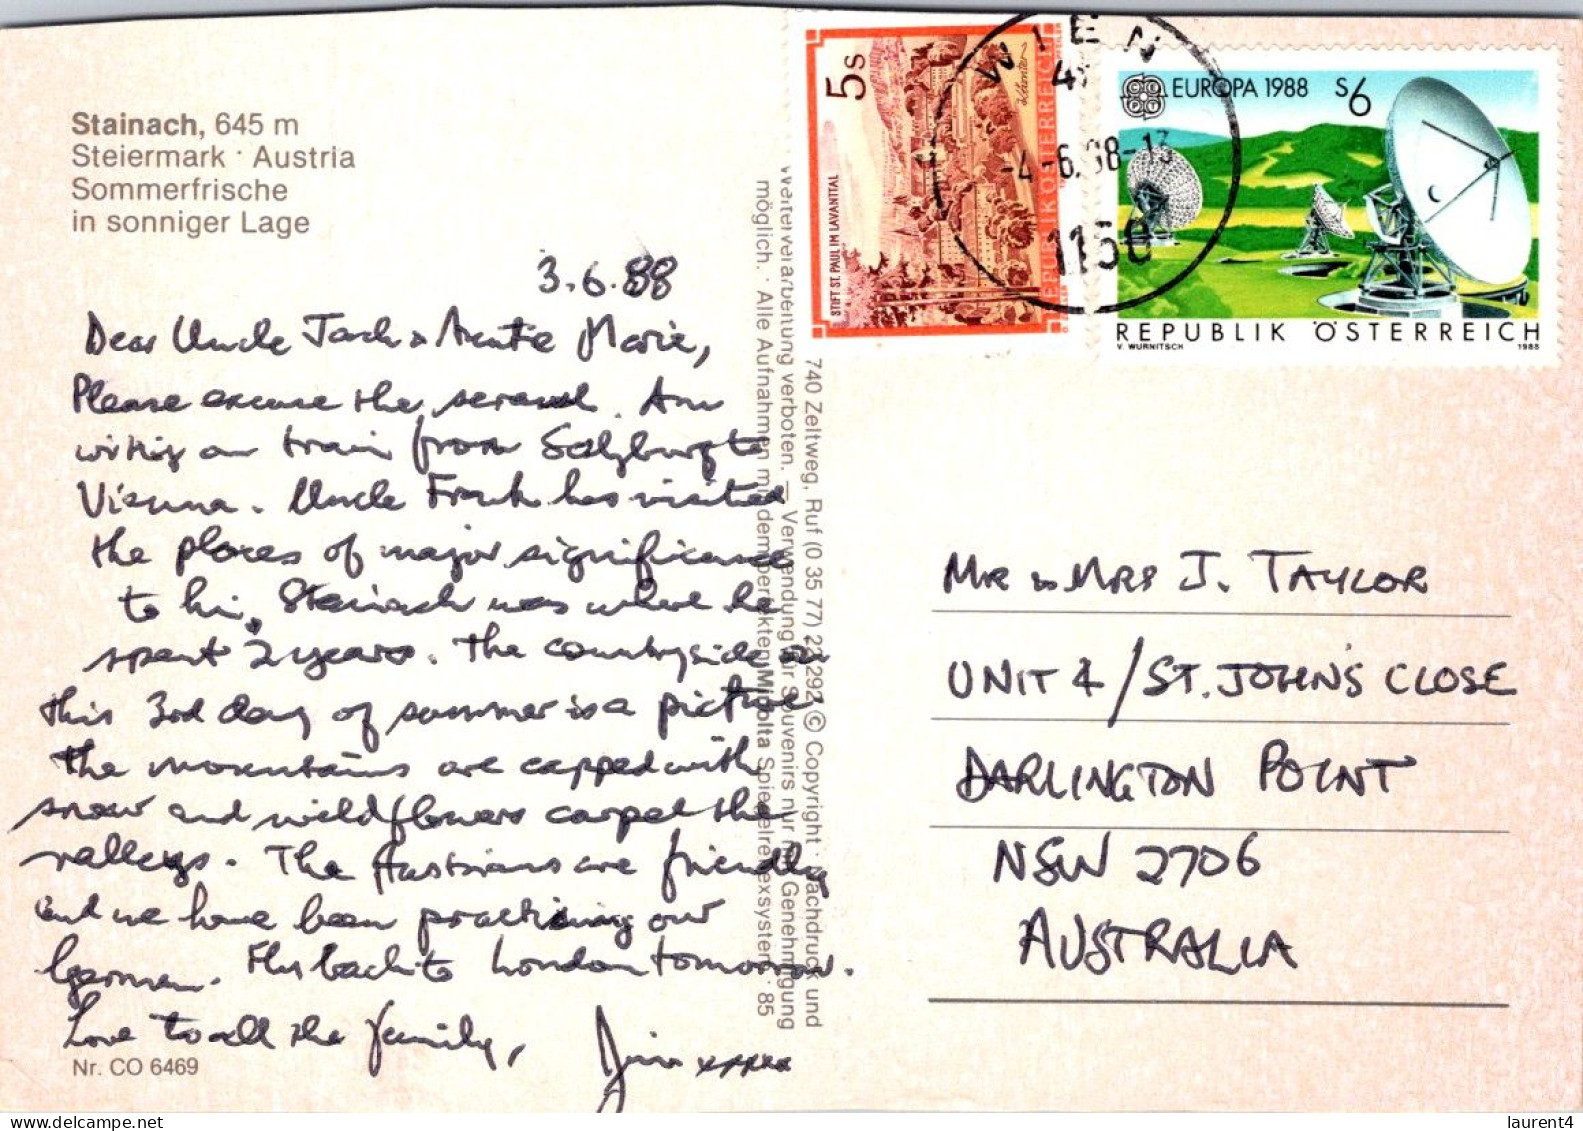 Stainach, 645 m
Steiermark · Austria
Sommerfrische
in sonniger Lage
3.6.88
Dear Uncle Jack & Auntie Marie,
Please excuse the scrawl. Am
writing on train from Salzburg to
Vienna. Uncle Frank has visited
the places of major significance
to him, Stainach was where he
spent 2 years. The countryside on
this 3rd day of summer is a picture
the mountains are capped with
snow and wildflowers carpet the
valleys. The Austrians are friendly
and we have been practising our
German. Fly back to London tomorrow.
Love to all the family,
xxxxx
Nr. CO 6469
740 Zeltweg, Ruf (0 35 77) 22 292 © Copyright · Nachdruck und
Weiterverarbeitung verboten. — Verwendung für Souvenirs nur mit Genehmigung
möglich. · Alle Aufnahmen mit dem perfekten Minolta Spiegelreflexsystem · 85
5s
STIFT ST. PAUL IM LAVANTTAL
REPUBLIK ÖSTERREICH
WIEN
-4.-6.88-13
1150
EUROPA 1988 S6
REPUBLIK ÖSTERREICH
V. WURNITSCH 1988
MR & MRS J. TAYLOR
UNIT 4/ST. JOHN'S CLOSE
DARLINGTON POINT
NSW 2706
AUSTRALIA
laurent4